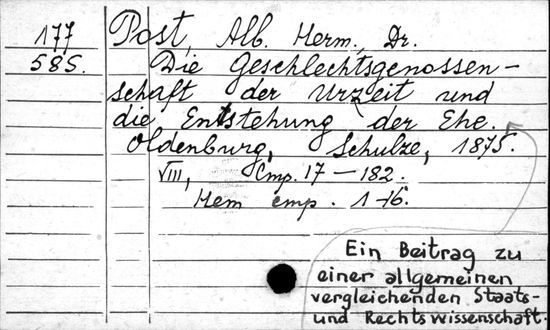 177 Post, Alb. Herm., Dr.
585. Die Geschlechtsgenossen-
schaft der Urzeit und
die Entstehung der Ehe.
Oldenburg, Schulze, 1875.
VIII, Стр. 17 – 182.
Нем стр. 1-16.
Ein Beitrag zu
einer allgemeinen
vergleichenden Staats-
und Rechtswissenschaft.